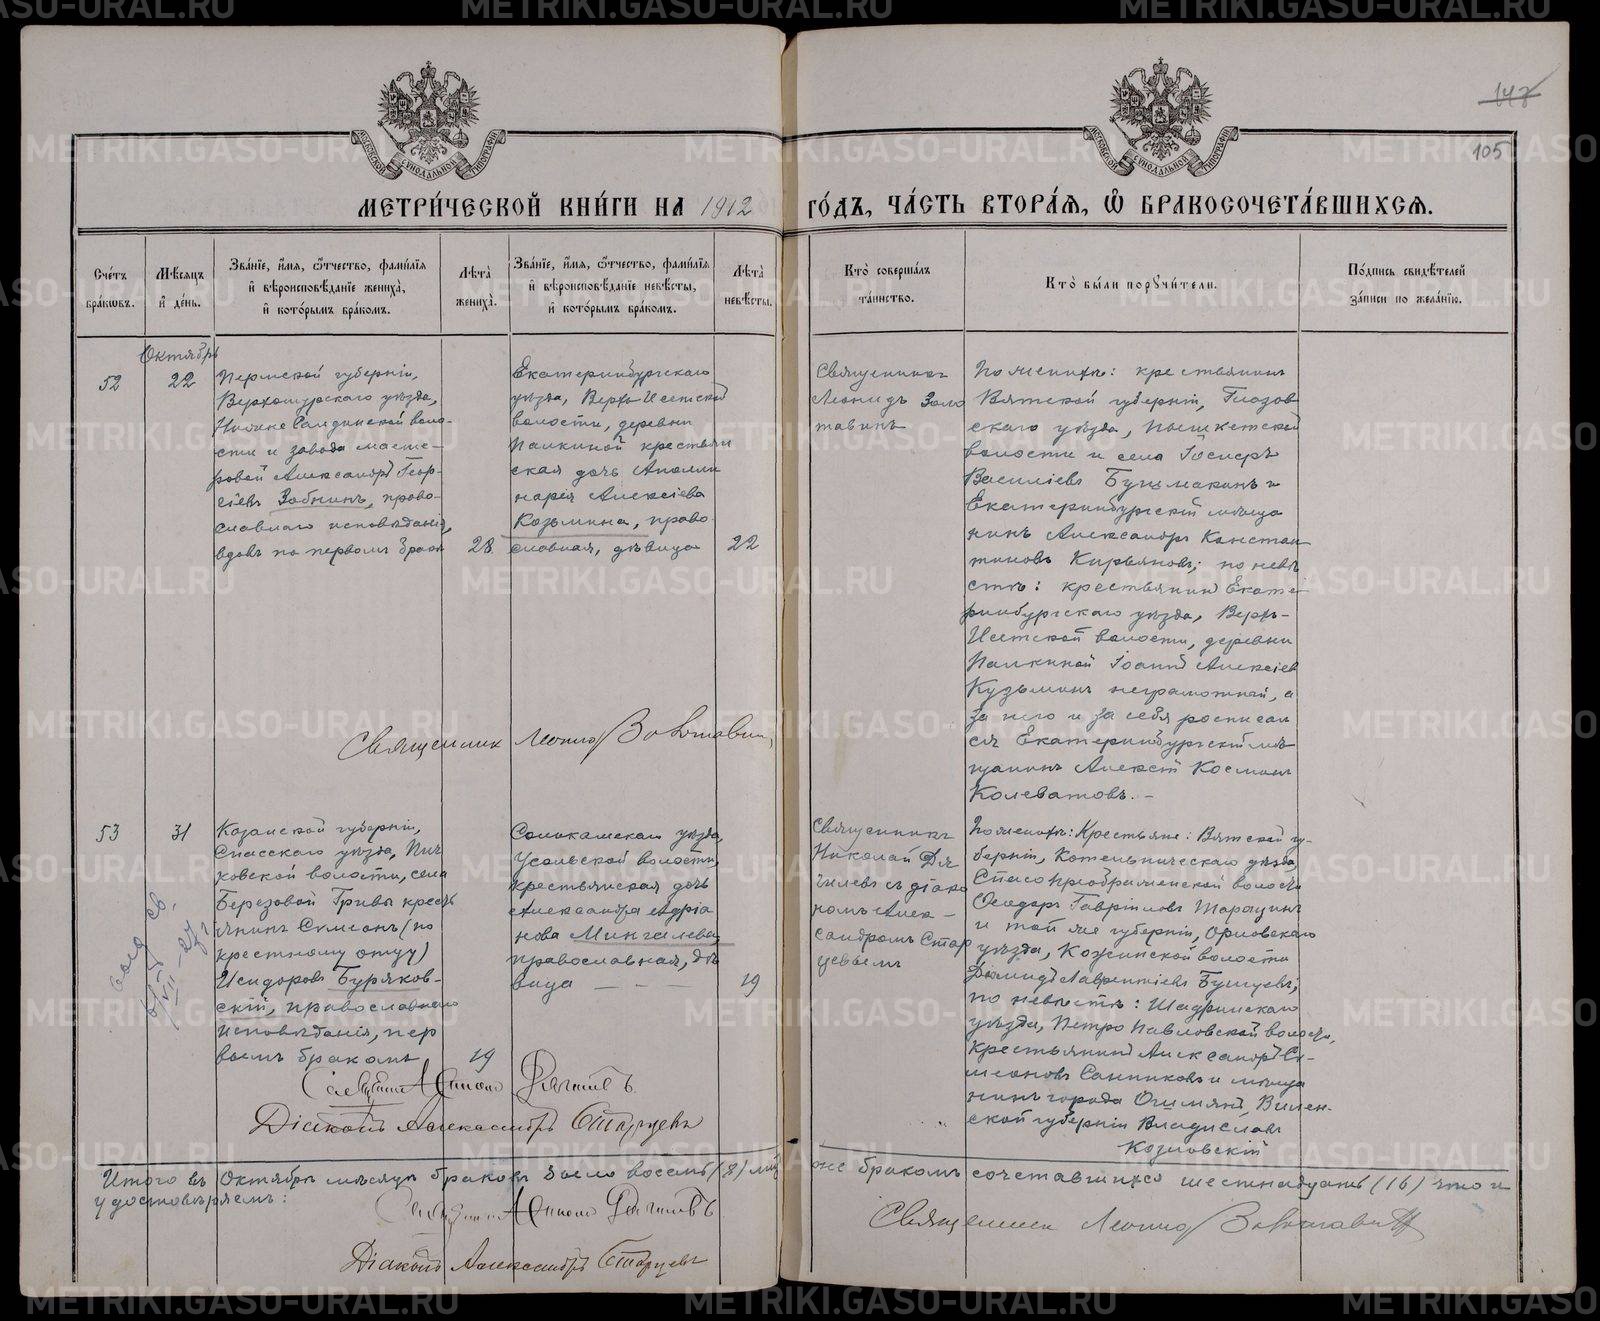 МЕТРИ́ЧЕСКОЙ КНИ́ГИ НА 1912 ГО́ДЪ, ЧА́СТЬ ВТОРА́Я, Ѡ БРАКОСОЧЕТА́ВШИХСЯ.
147
105
Сче́тъ бра́кѡвъ.
Мѣ́сяцъ и҆ де́нь.
Зва́нїе, и҆́мя, ѻ҆́тчество, фами́лїя и҆ вѣроисповѣ́данїе жениха̀, и҆ кото́рымъ бра́комъ.
Лѣ́та жениха̀.
Зва́нїе, и҆́мя, ѻ҆́тчество, фами́лїя и҆ вѣроисповѣ́данїе невѣ́сты, и҆ кото́рымъ бра́комъ.
Лѣ́та невѣ́сты.
Кто̀ соверша́лъ та́инство.
Кто̀ бы́ли порꙋчи́тели.
По́дпись свидѣ́телей за́писи по жела́нїю.
Октябрь
52
22
Пермской губернiи,
Верхотурскаго уѣзда,
Нижне Салдинской воло-
сти и завода масте-
ровой Александръ Геор-
гiевъ Зобнинъ, право-
славнаго исповѣданiя,
вдовъ по первомъ бракѣ
28
Екатеринбургскаго
уѣзда, Верхъ-Исетской
волости, деревни
Палкиной крестьян
ская дочь Аполли
нарiя Алексiева
Козьмина, право-
славная, дѣвица
22
Священникъ
Леонидъ Золо
тавинъ
По женихѣ: крестьянинъ
Вятской губернiи, Глазов-
скаго уѣзда,
волости и села
Василiевъ Бушмакинъ и
Екатеринбургскiй мѣща
нинъ Александръ Констан
тиновъ Кирьяновъ; по невѣ
стѣ: крестьянинъ Екате-
ринбургскаго уѣзда, Верхъ-
Исетской волости, деревни
Палкиной Iоаннъ Алексiевъ
Кузьминъ неграмотный, а
за него и за себя росписал
ся Екатеринбургскiй мѣ-
щанинъ Алексiй Космин
Колеватовъ. –
Священник Леонид Золотавин
53
31
Казанской губернiи,
Спасскаго уѣзда,
ковской волости, села
Березовой Гривы кресть
янинъ Симеонъ (по
крестному отцу)
Исидоровъ Буряков-
скiй, православнаго
исповѣданiя, пер
вымъ бракомъ
19
Соликамскаго уѣзда,
Усольской волости,
крестьянская дочь
Александра Андрiа
нова Мингалева,
православная, дѣ
вица – – –
19
Священникъ
Николай Дя
гилевъ съ дiако
номъ Алек-
сандромъ Стар
цевымъ
По женихѣ: Крестьяне: Вятской гу-
бернiи, Котельническаго уѣзда,
Спасопреображенской волости
Ѳеодоръ Гаврiиловъ
и той же губернiи, Орловскаго
уѣзда, волости
Лаврентiевъ
по невѣстѣ: Шадринскаго
уѣзда, Петро Павловской волости,
крестьянинъ Александръ Си-
меоновъ Санниковъ и мѣща
нинъ города Ошмянъ, Вилен-
ской губернiи Владиславъ
Козловскiй
Дiаконъ Александръ Старцевъ
Итого въ Октябрѣ мѣсяцѣ браковъ было восемь (8) лицъ же бракомъ сочетавшихся шестнадцать (16) что и
удостовѣряемъ:
Священник Леонид Золотавин
Дiаконъ Александръ Старцевъ
METRIKI.GASO-URAL.RU